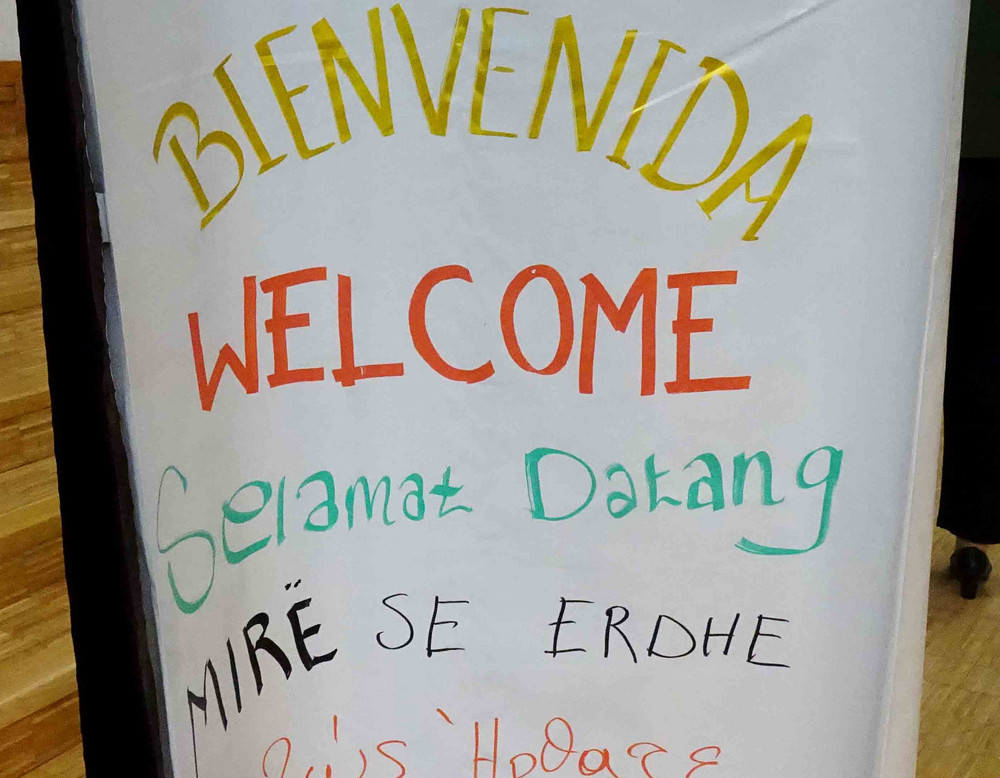 BIENVENIDA
WELCOME
Selamat Datang
MIRË SE ERDHE